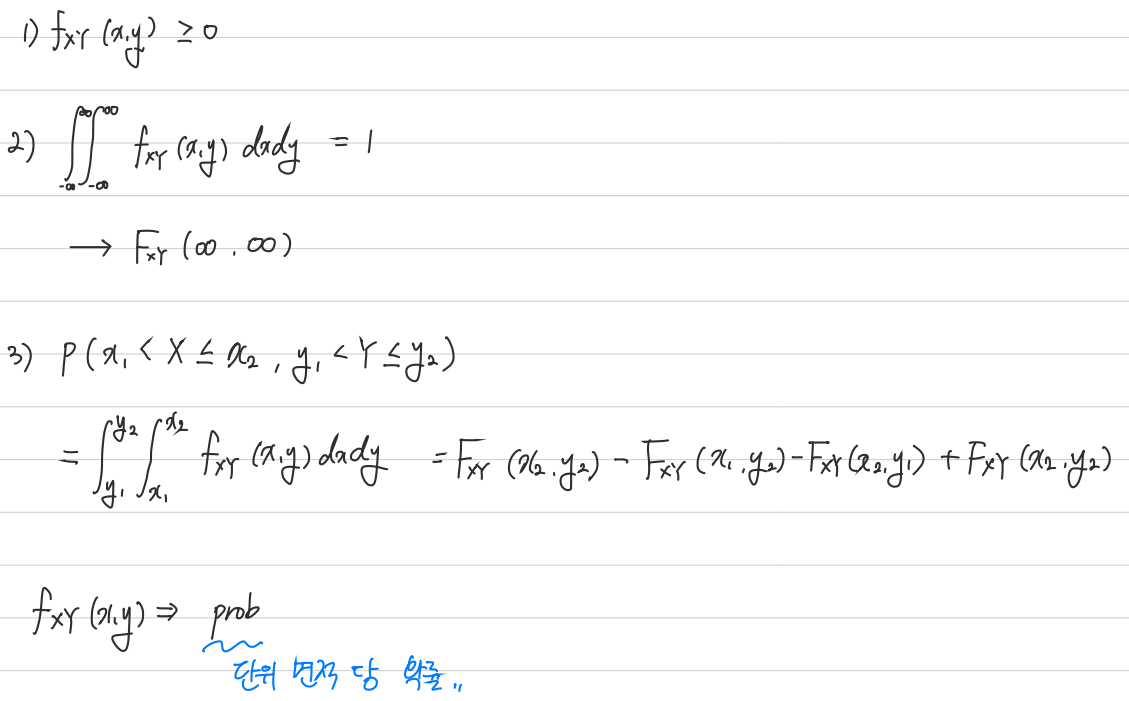 1) f_XY (x,y) ≥ 0
2) ∫_{-∞}^{∞} ∫_{-∞}^{∞} f_XY (x,y) dxdy = 1
→ F_XY (∞, ∞)
3) P(x₁ < X ≤ x₂, y₁ < Y ≤ y₂)
= ∫_{y₁}^{y₂} ∫_{x₁}^{x₂} f_XY (x,y) dxdy = F_XY (x₂,y₂) - F_XY (x₁,y₂) - F_XY (x₂,y₁) + F_XY (x₂,y₂)
f_XY (x,y) ⇒ prob
단위 면적 당 확률..